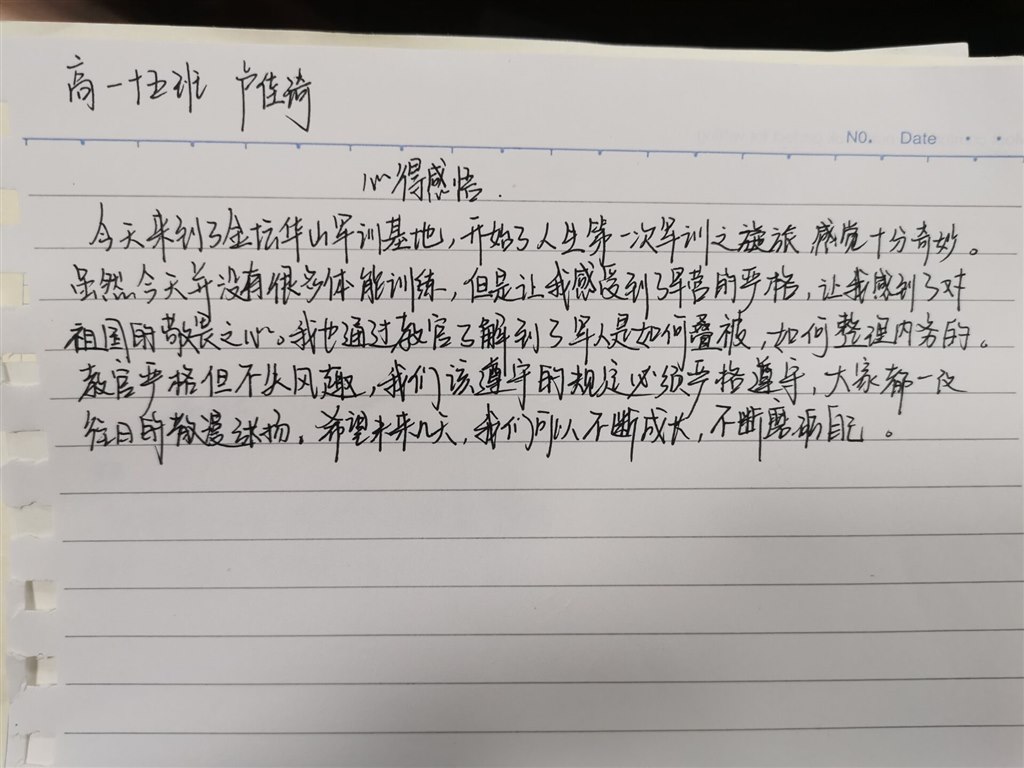 高一十五班 卢佳琦
NO. Date
心得感悟.
今天来到了金坛华山军训基地,开始了人生第一次军训之旅 感觉十分奇妙。
虽然今天并没有很多体能训练,但是让我感受到了军营的严格,让我感到了对
祖国的敬畏之心。我也通过教官了解到了军人是如何叠被,如何整理内务的。
教官严格但不失风趣,我们该遵守的规定必须严格遵守,大家都一改
往日的散漫
希望未来几天,我们可以不断成长,不断磨砺自己。